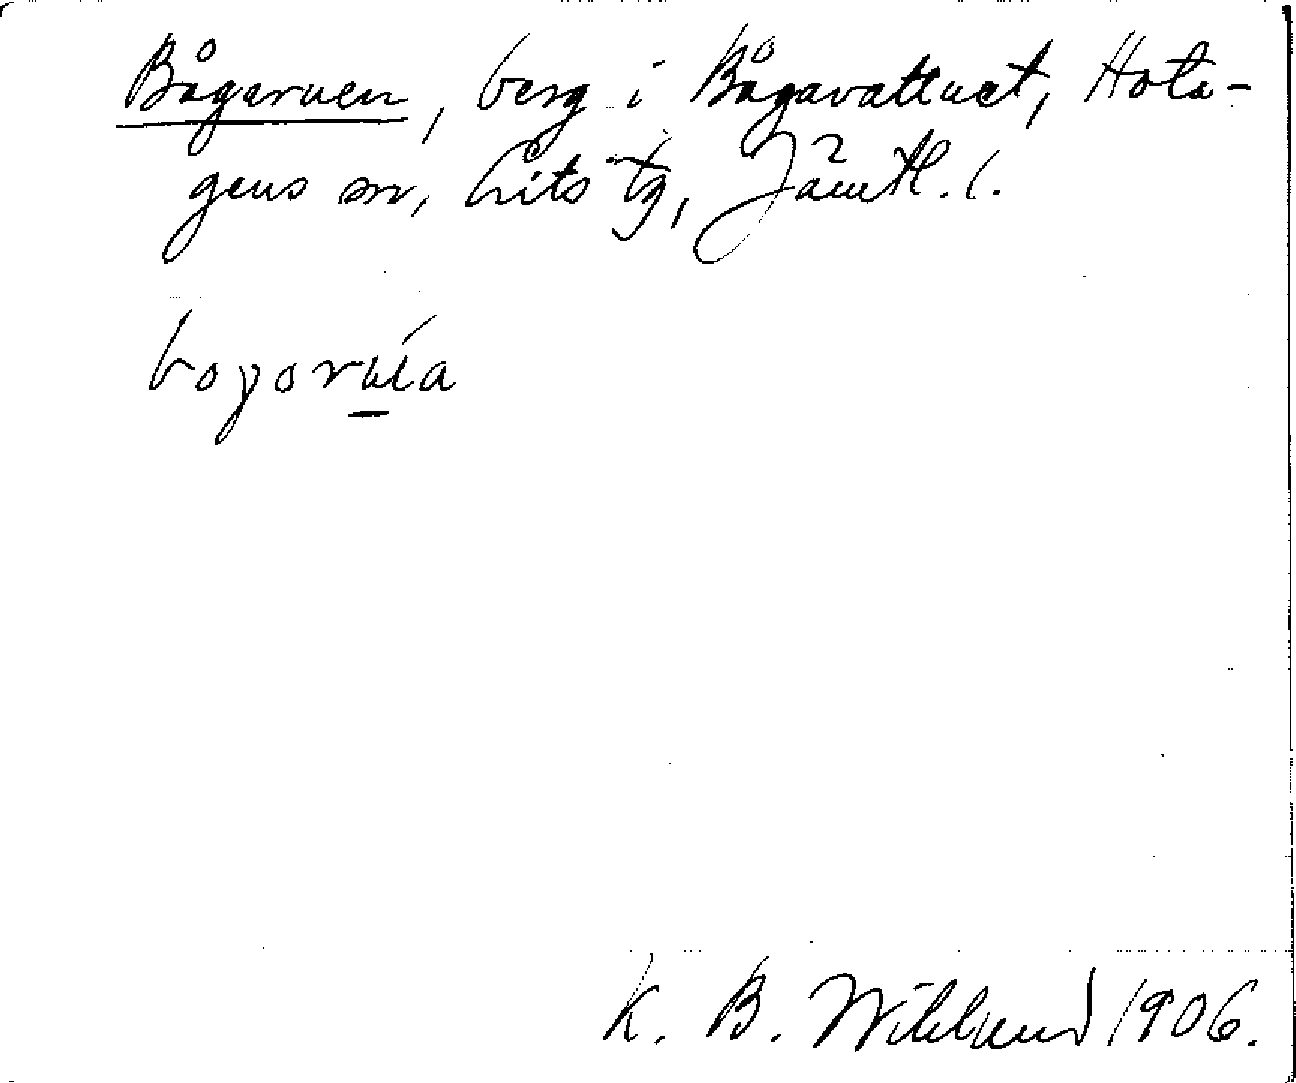 Bågaruen, berg i Bågavattnet, Hota-
gens sn, Lits tg, Jämtl. l.
bogoruía
K. B. Wiklund 1906.